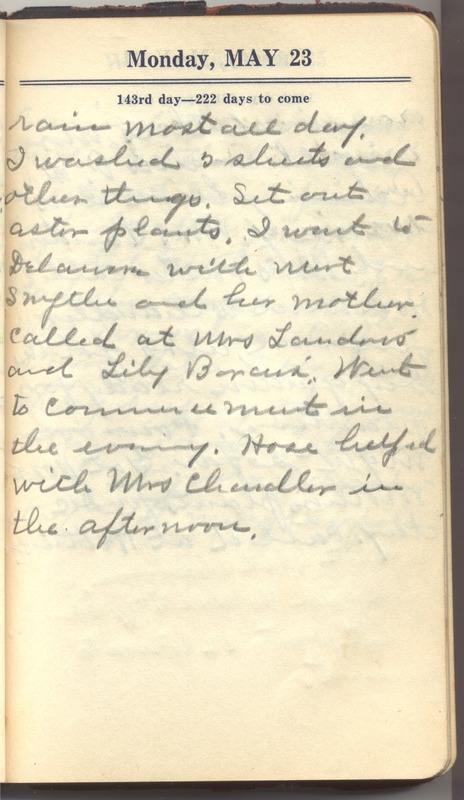 Monday, MAY 23
143rd day—222 days to come
rain most all day.
I washed 5 sheets and
other things. Set out
aster plants. I went to
Delaware with Mert
Smythe and her mother.
Called at Mrs Landons
and Lily Boraus'. Went
to commencement in
the evening. Hose helped
with Mrs Chandler in
the afternoon.